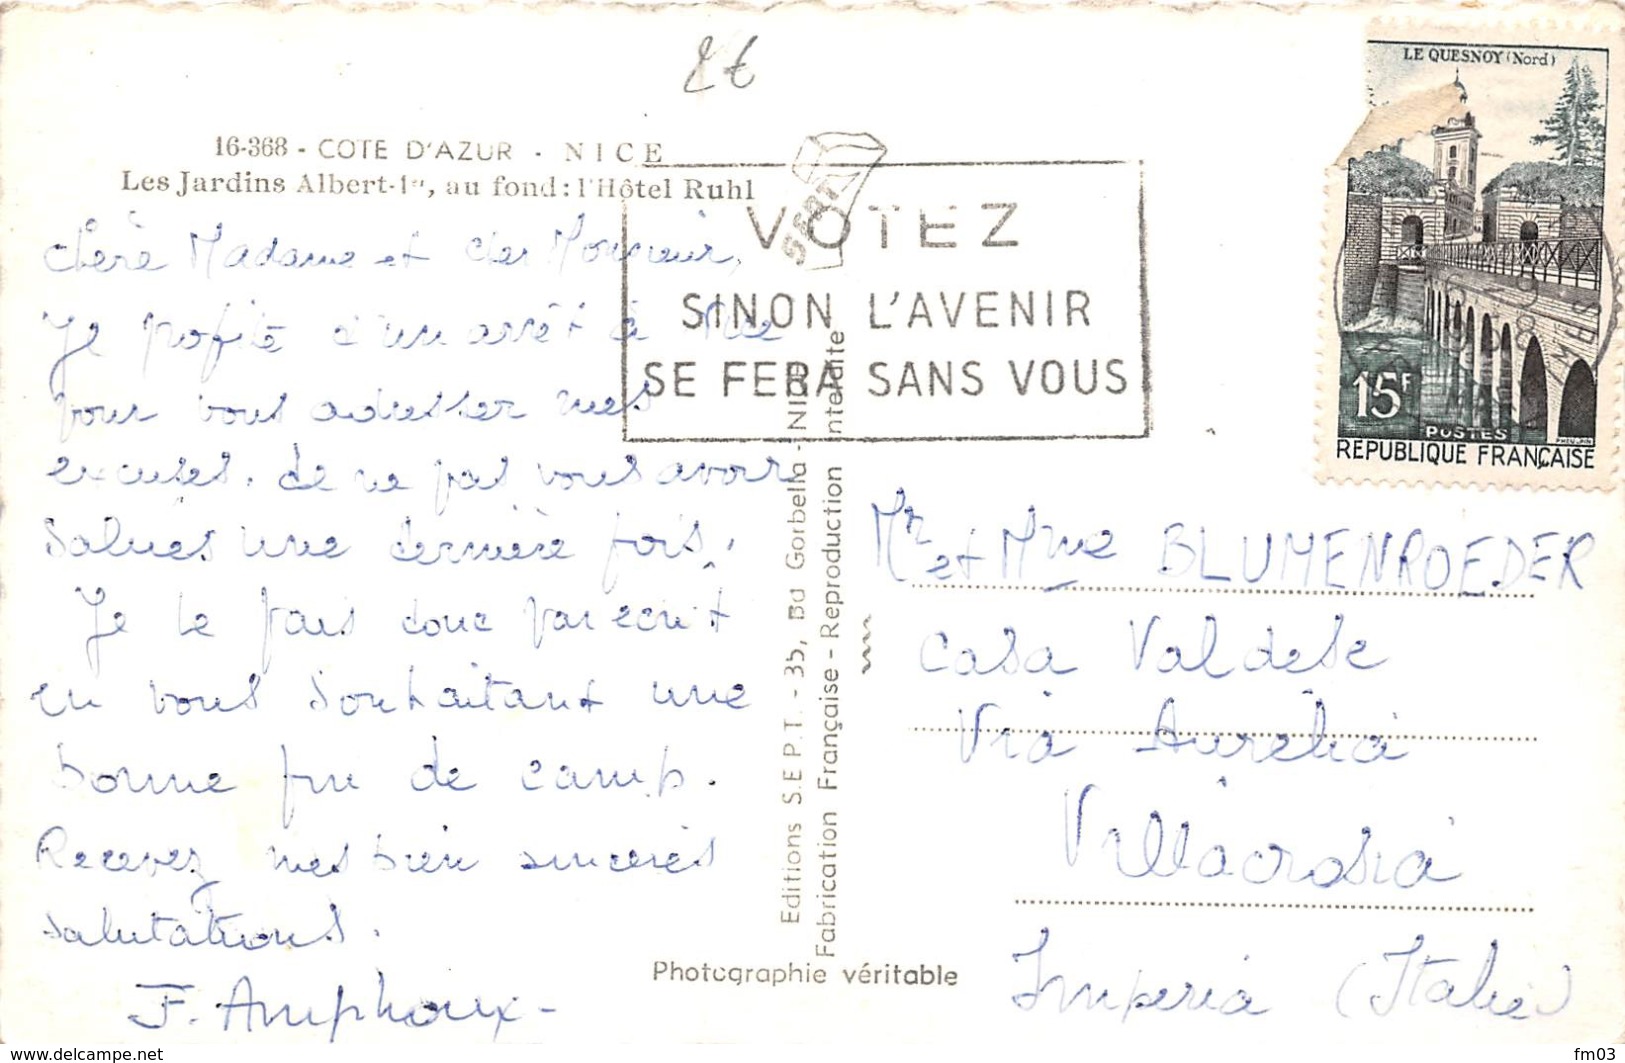 2€
16-368 - COTE D'AZUR - NICE
Les Jardins Albert-1er, au fond: l'Hôtel Ruhl
chère Madame et cher Monsieur,
Je profite d'un arrêt à Nice
pour vous adresser mes
excuses. de ne pas vous avoir
salués une dernière fois.
Je le fais donc par écrit
en vous souhaitant une
bonne fin de camp.
Recevez mes bien sincères
salutations.
F. Amphoux-
SEPT
Editions S.E.P.T. - 35, Bd Gorbella - NICE
Fabrication Française - Reproduction interdite
Photographie véritable
VOTEZ
SINON L'AVENIR
SE FERA SANS VOUS
LE QUESNOY (Nord)
15F
POSTES
REPUBLIQUE FRANÇAISE
Mr et Mme BLUMENROEDER
Casa Valdese
Via Aurelia
Vallacrosia
Imperia (Italie)
fm03
www.delcampe.net